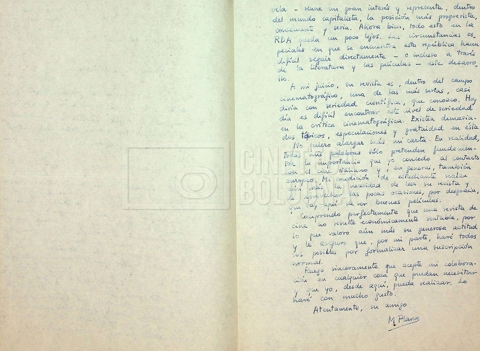 vela - tiene un gran interés y representa, dentro
del mundo capitalista, la posición más progresista,
consecuente y seria. Ahora bien, todo esto en la
RDA queda un poco lejos. Las circunstancias es-
peciales en que se encuentra esta república hacen
difícil seguir directamente - o incluso a través
de la literatura y las películas - este desarro-
llo.
A mi juicio, su revista es, dentro del campo
cinematográfico, una de las más serias, casi
diría con seriedad científica, que conozco. Hoy
día es difícil encontrar este nivel de seriedad
en la crítica cinematográfica. Existen demasia-
dos tópicos, especulaciones y gratuidad en ésta.
No quiero alargar más mi carta. En realidad,
todas mis palabras sólo pretenden fundamen-
tar la importancia que yo concedo al contacto
con el cine italiano y, en general, también
europeo. Mi condición de estudiante
necesidad de leer su revista y
las pocas ocasiones, por desgracia,
que hay aquí de ver buenas películas.
Comprendo perfectamente que una revista de
cine no resulte económicamente rentable, por
lo que valoro aún más su generosa actitud
y le aseguro que, por mi parte, haré todo
lo posible por formalizar una suscripción
normal.
Ruego sinceramente que acepte mi colabora-
ción en cualquier cosa que puedan necesitar
y que yo, desde aquí, pueda realizar. Lo
haré con mucho gusto.
Atentamente, su amigo
CINETECA
BOLOGNA